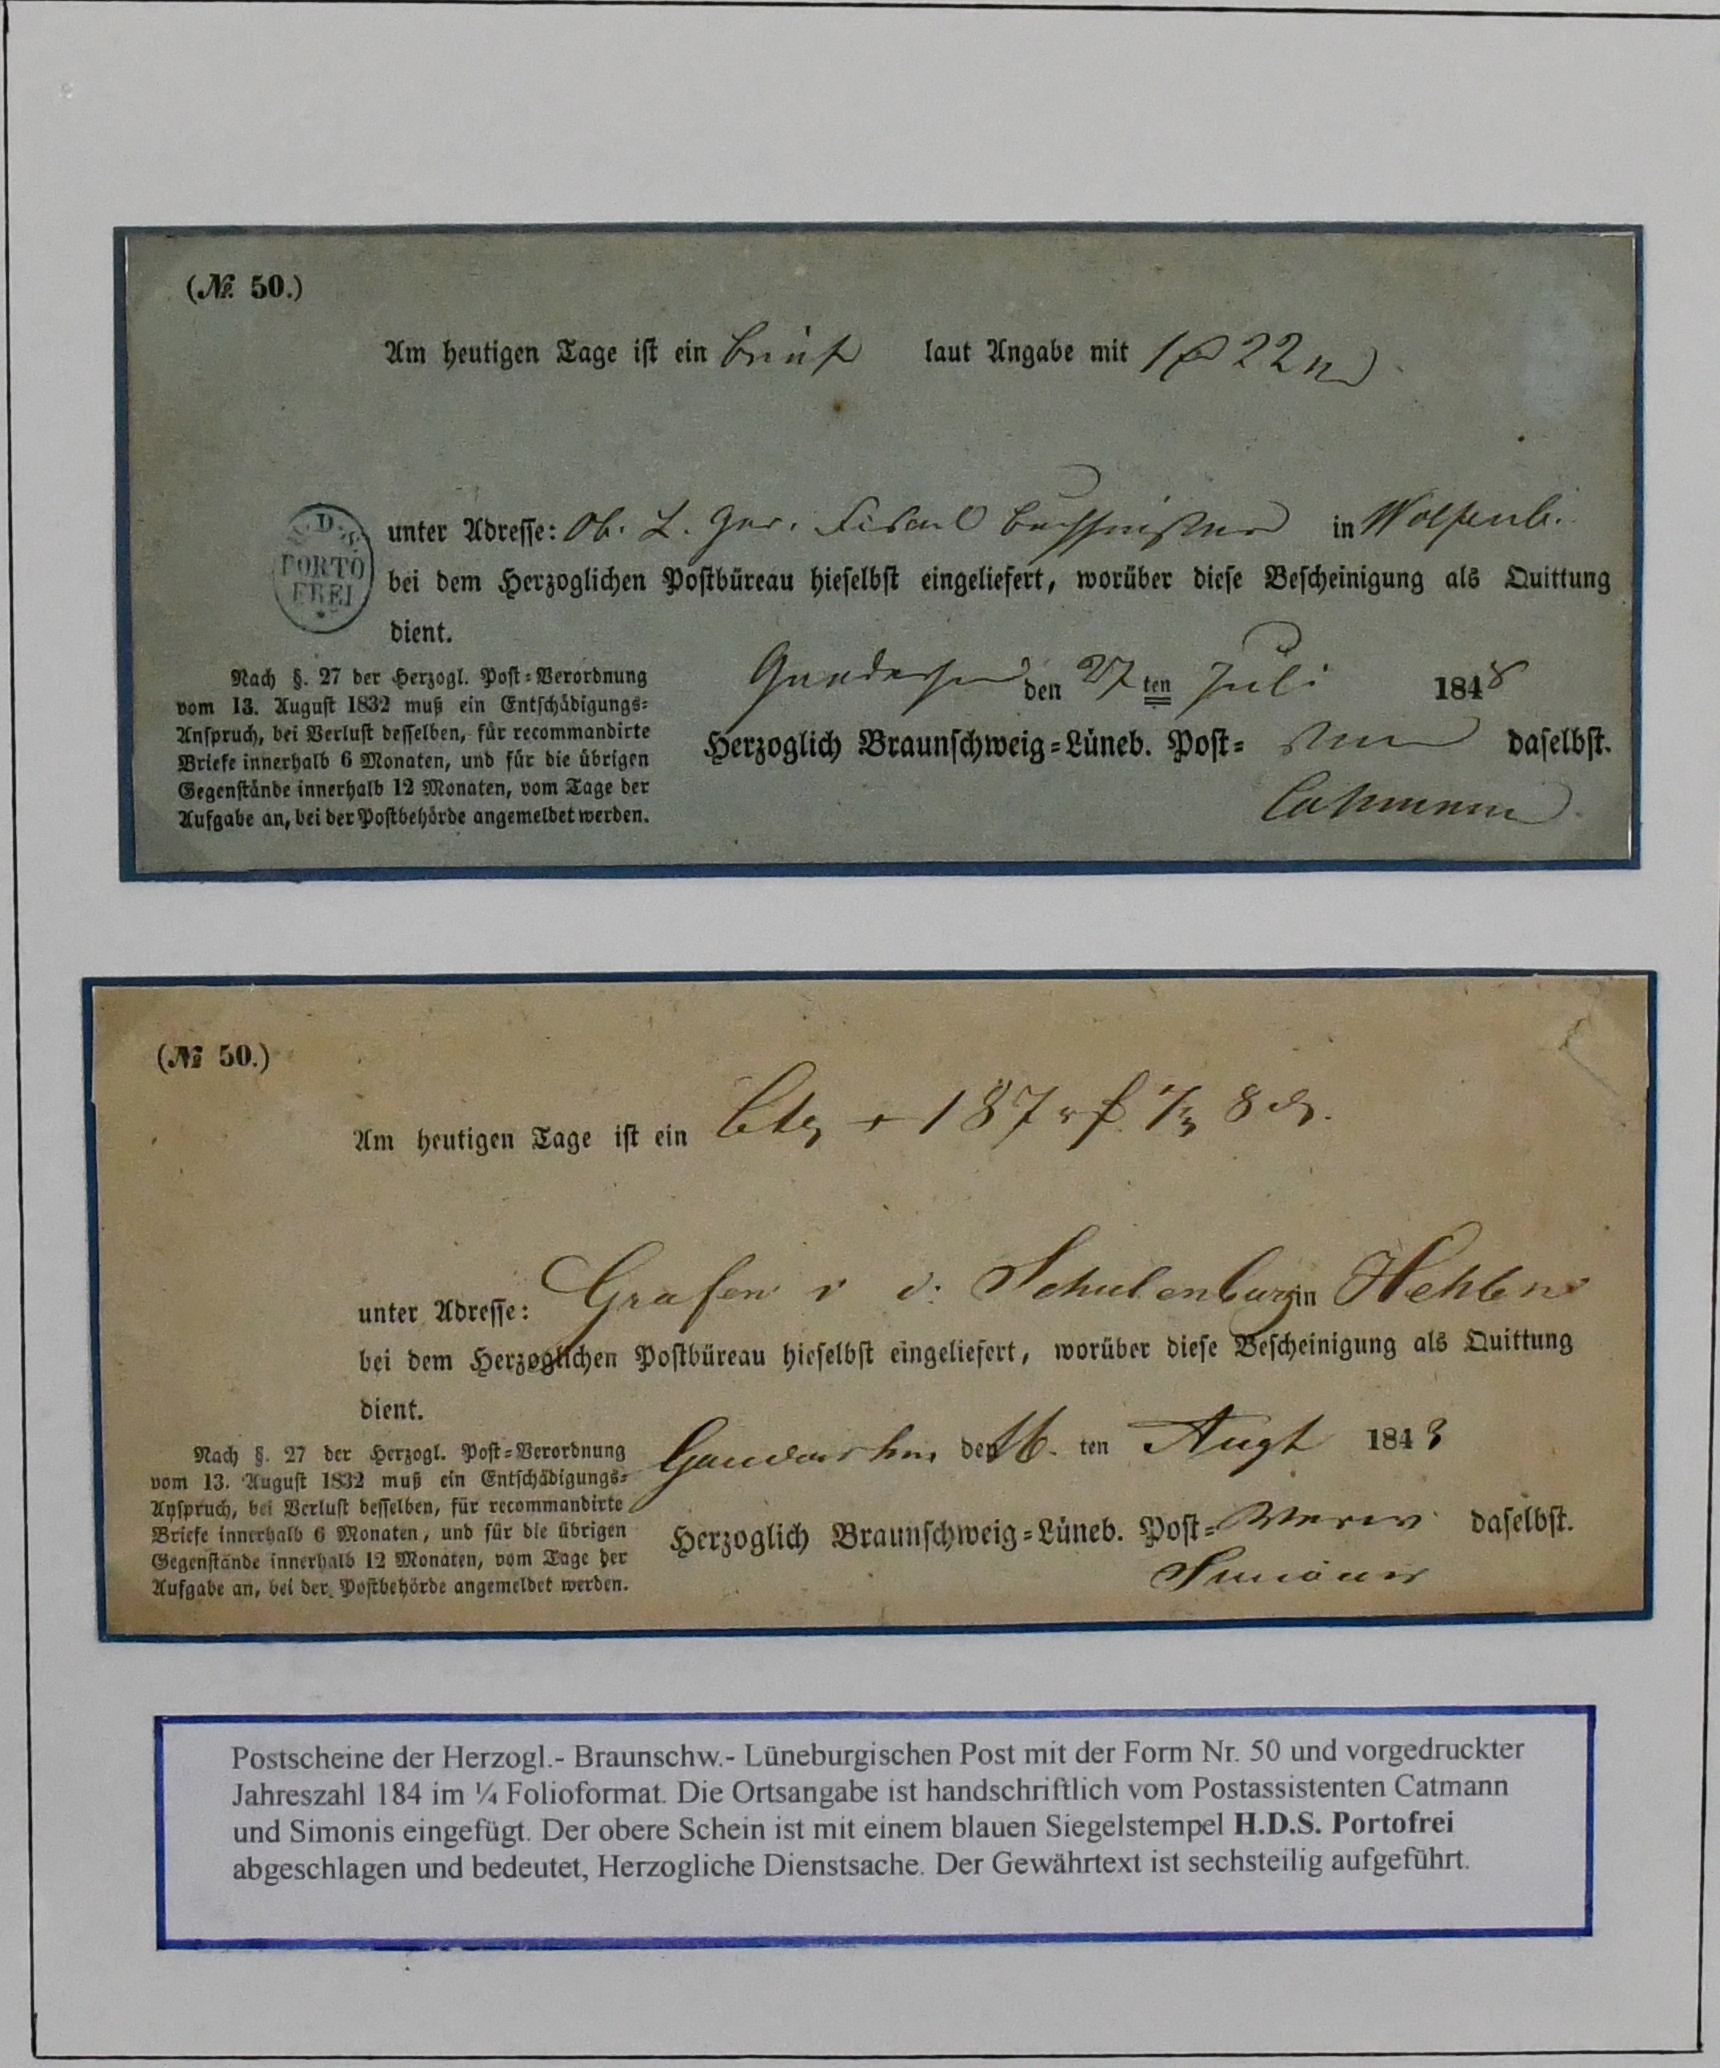 (№ 50.)
Am heutigen Tage ist ein Brief laut Angabe mit 1 22
unter Adresse: Ob. L. Ger. Fiscal in Wolfenb.
H. D. S.
PORTO
FREI
bei dem Herzoglichen Postbüreau hieselbst eingeliefert, worüber diese Bescheinigung als Quittung
dient.
Gandersh den 27 ten Juli 1848
Herzoglich Braunschweig-Lüneb. Post- daselbst.
Catmann
Nach §. 27 der Herzogl. Post-Verordnung
vom 13. August 1832 muß ein Entschädigungs-
Anspruch, bei Verlust desselben, für recommandirte
Briefe innerhalb 6 Monaten, und für die übrigen
Gegenstände innerhalb 12 Monaten, vom Tage der
Aufgabe an, bei der Postbehörde angemeldet werden.
(№ 50.)
Am heutigen Tage ist ein 187 8
unter Adresse: Grafen v d. Schulenburg in Hehlen
bei dem Herzoglichen Postbüreau hieselbst eingeliefert, worüber diese Bescheinigung als Quittung
dient.
Gandershm den 16. ten Augt 1843
Herzoglich Braunschweig-Lüneb. Post- Verw. daselbst.
Simonis
Nach §. 27 der Herzogl. Post-Verordnung
vom 13. August 1832 muß ein Entschädigungs-
Anspruch, bei Verlust desselben, für recommandirte
Briefe innerhalb 6 Monaten, und für die übrigen
Gegenstände innerhalb 12 Monaten, vom Tage der
Aufgabe an, bei der Postbehörde angemeldet werden.
Postscheine der Herzogl.- Braunschw.- Lüneburgischen Post mit der Form Nr. 50 und vorgedruckter
Jahreszahl 184 im ¼ Folioformat. Die Ortsangabe ist handschriftlich vom Postassistenten Catmann
und Simonis eingefügt. Der obere Schein ist mit einem blauen Siegelstempel H.D.S. Portofrei
abgeschlagen und bedeutet, Herzogliche Dienstsache. Der Gewährtext ist sechsteilig aufgeführt.